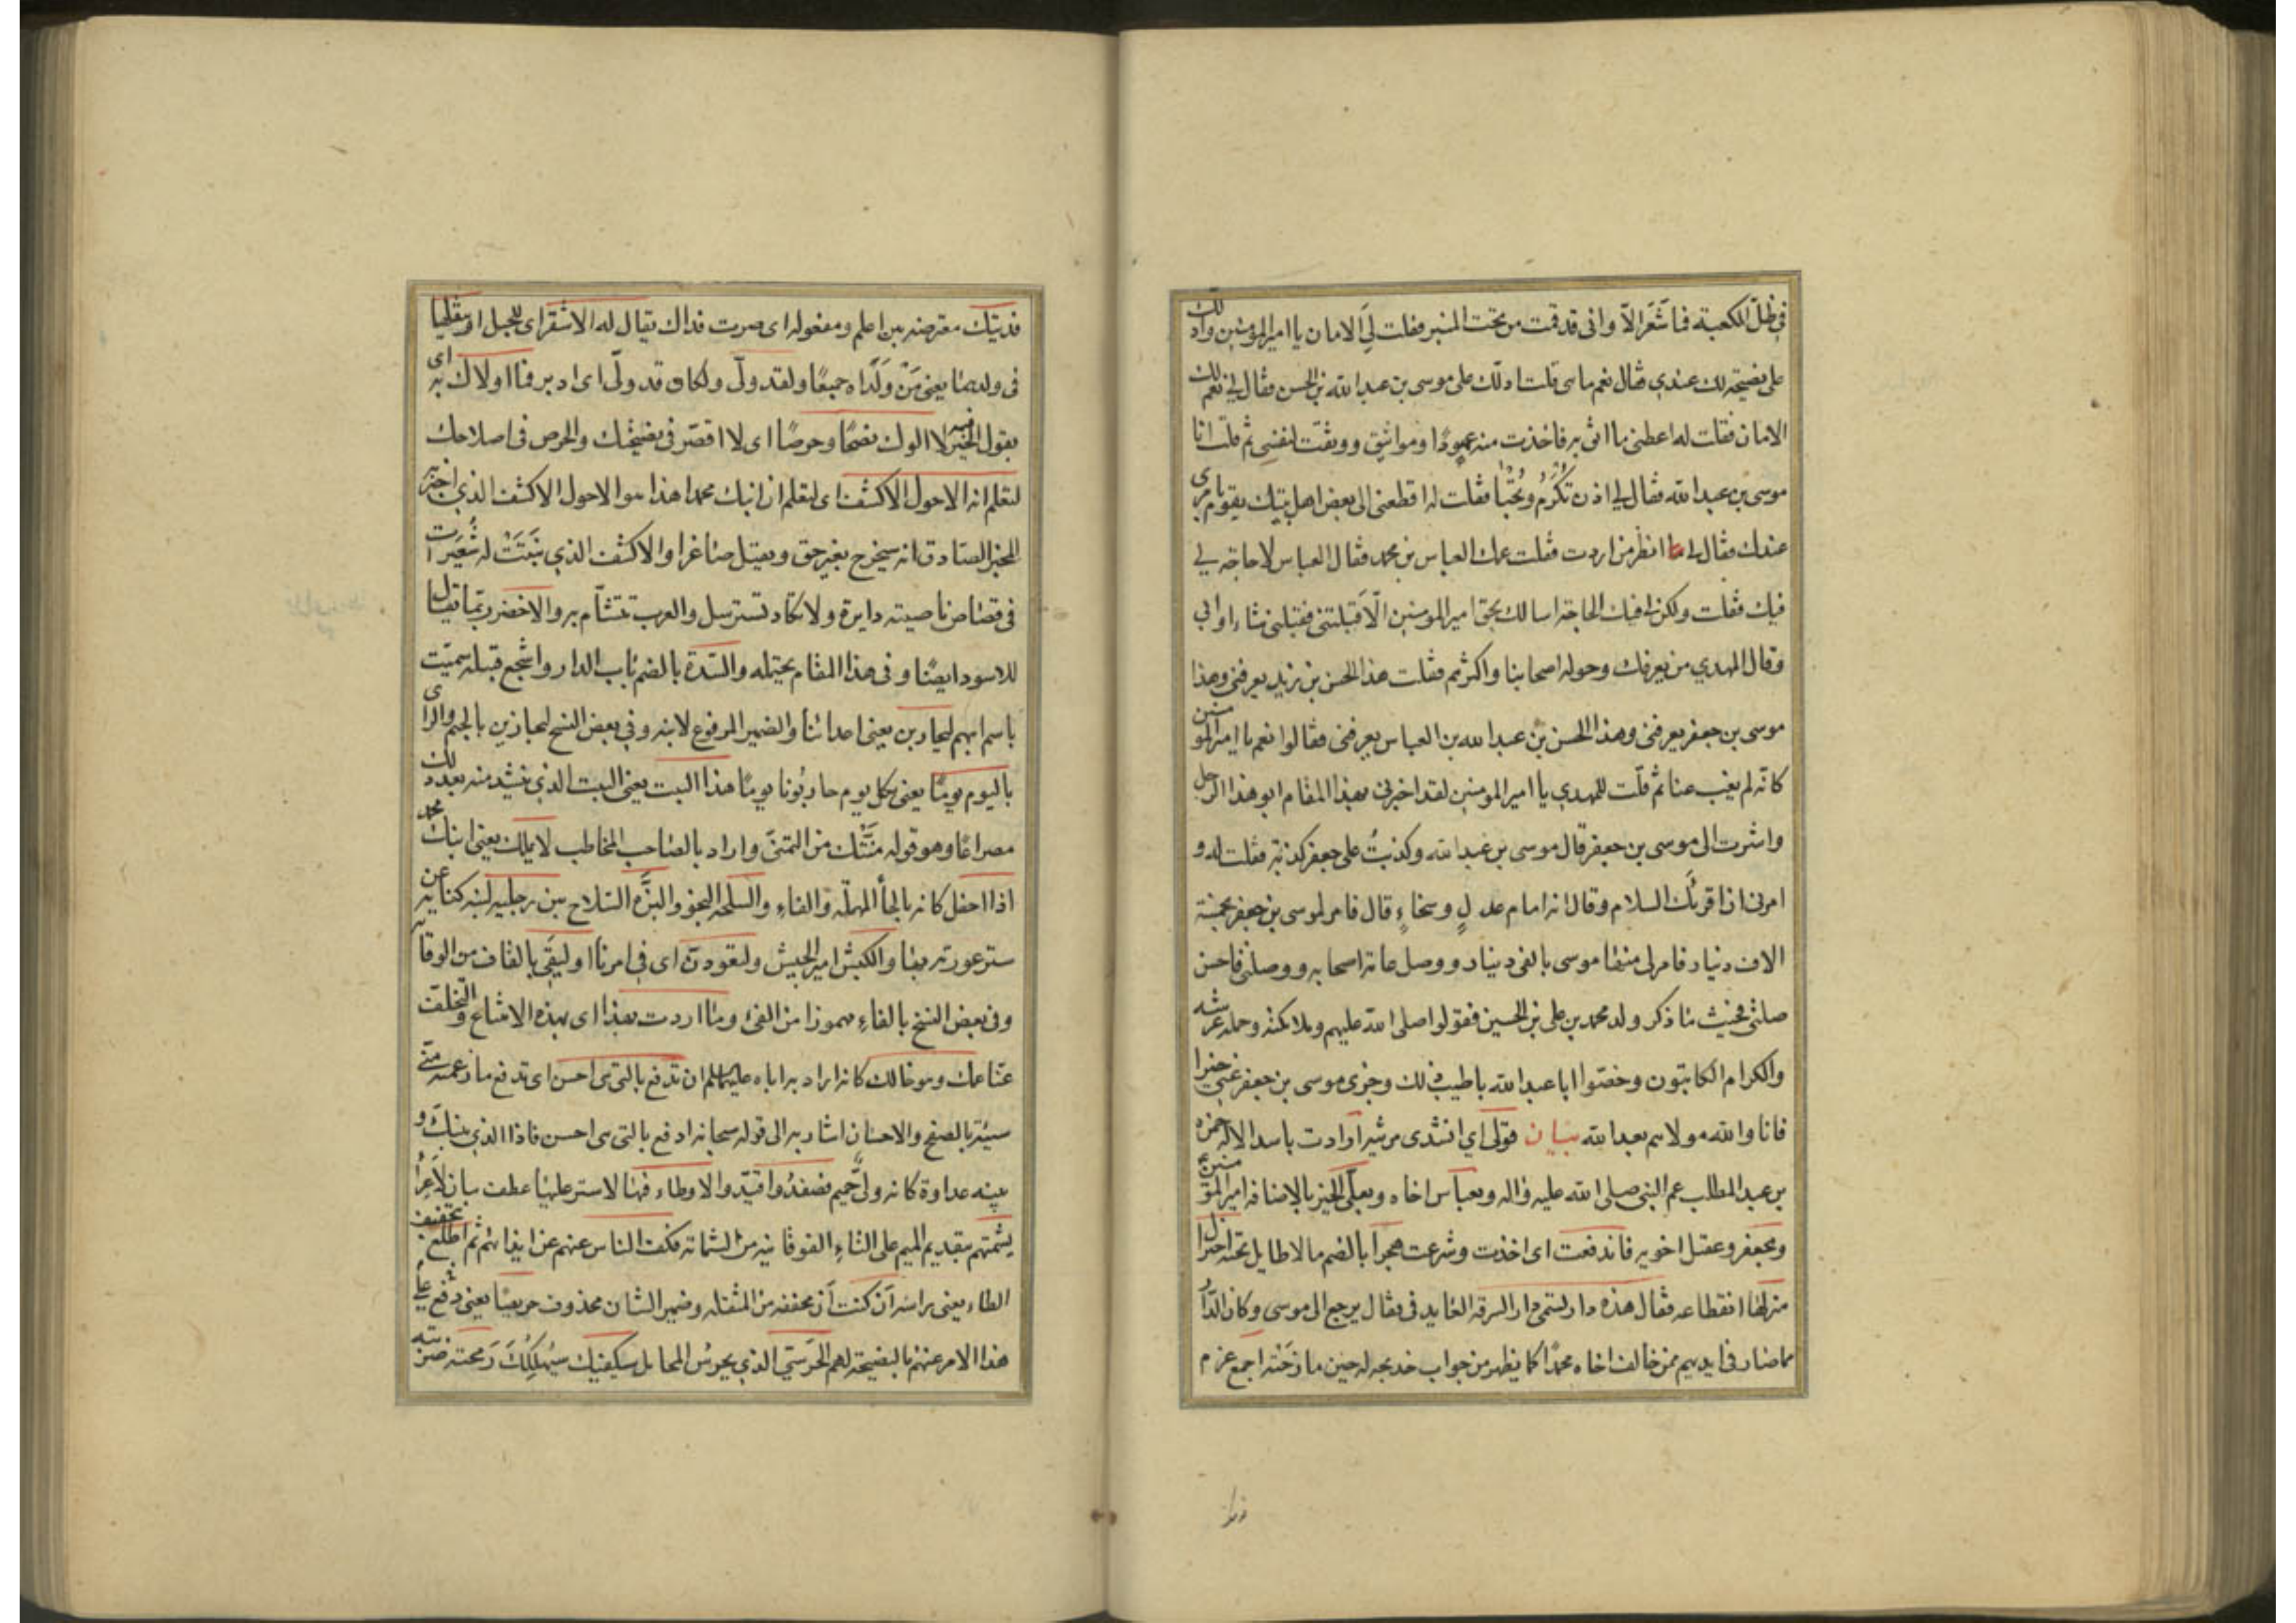 في ظل الكعبة فما شعر الا واني قد قمت من تحت المنبر فقلت لي الامان يا امير المؤمنين وادلك
على نصيحة لك عندي فقال نعم ما هي قلت ادلك على موسى بن عبد الله بن الحسن فقال لي نعم لك
الامان فقلت له اعطني ما اثق به فاخذت منه عهودًا ومواثيق ووثقت لنفسي ثم قلت انا
موسى بن عبد الله فقال لي اذن تُكْرَمُ وتُحْبا فقلت له اقطعني الى بعض اهل بيتك يقوم بامري
عندك فقال لي انظر من اردت فقلت عمك العباس بن محمد فقال العباس لا حاجة لي
فيك فقلت ولكن لي فيك الحاجة اسالك بحق امير المومنين الّا قبلتني فقبلني شاء او ابي
وقال لي المهدي من يعرفك وحوله اصحابنا واكثرهم فقلت هذا الحسن بن زيد يعرفني وهذا
موسى بن جعفر يعرفني وهذا الحسن بن عبد الله بن العباس يعرفني فقالوا نعم يا امير المؤمنين
كانّه لم يغب عنا ثم قلت للمهدي يا امير المومنين لقد اخبرني بهذا المقام ابو هذا الرجل
واشرت الى موسى بن جعفر قال موسى بن عبد الله وكذبتُ على جعفر كذبة فقلت له و
امرني ان اقرئك السلام وقال انه امام عدلٍ وسخاءٍ قال فامر لموسى بن جعفر بخمسة
الاف دينار فامر لي منها موسى بالفي دينار ووصل عامة اصحابه ووصلني فاحسن
صلتي فحيث ما ذكر ولد محمد بن علي بن الحسين فقولوا صلى الله عليهم وملائكته وحملة عرشه
والكرام الكاتبون وخصّوا ابا عبد الله باطيب ذلك وجزى موسى بن جعفر عني خيرا
فانا والله مولاهم بعد الله بيان قولي اي انشدي مرثية ارادت باسد الاله حمزة
بن عبد المطلب عم النبي صلى الله عليه واله وبعباس اخاه وبعلّي الخير بالاضافة امير المؤمنين ع
وبجعفر وعقيل اخويه فاندفعت اى اخذت وشرعت هجرا بالضم ما لا طايل تحته اختزال
منزلها انقطاعه فقال هذه دار تسمى دار السرقة القايد في فقال يرجع الى موسى وكان الدار
مما صار في ايديهم ممن خالف اخاه محمدًا كما يظهر من جواب خديجة له حين مازحته اجمع عزم
فديتك معترضة بين اعلم ومفعوله اى صرت فداك يقال له الاشقر اى للجبل او سقلها
في ولدهما يعني مَنْ وَلَّدَاه جميعًا ولقد ولّى ولكان قد ولّى اى ادبر فما اولاك به اى
بقول الخير فيه لا الوك نصحًا وحرصًا اى لا اقصر في نصيحتك والحرص في اصلاحك
لتعلم انه الاحول الاكشف اى لتعلم ان ابنك محمدا هذا هو الاحول الاكشف الذي اخبر به
المخبر الصادق انه سيخرج بغير حق ويقتل صاغرا والاكشف الذي نبتت له شعيرات
في قصاص ناصيته دايرة ولا تكاد تسترسل والعرب تتشأم به والاخضر ربّما يقال
للاسود ايضًا وفي هذا المقام يحتمله والسّدة بالضم باب الدار واشجع قبيلة سميّت
باسم ابيهم ليحاربن يعني اعدائنا والضمير المرفوع لابنه وفي بعض النسخ ليحازين بالجيم والزاى
باليوم يومًا يعني بكل يوم حاربونا يومًا هذا البيت يعني البيت الذي ينشد منه بعد ذلك
مصراعًا وهو قوله منّتك من التمنّى واراد بالصاحب المخاطب لا يملك يعني ابنك محمد
اذا احفل كانه بالحاء المهملة والفاء والسلحة النجو والبزّه السلاح بين رجليه لبنه كناية عن
ستر عورته بها والكبش امير الجيش ولتعودنّ اى في امرنا او ليقى بالقاف من الوقاية
وفي بعض النسخ بالفاء مهموزا من الفئ وما اردت بهذا اى بهذه الامتناع والتخلّف
عنا عمك وهو خالك كانه اراد به اباه عليهما السلام ان تدفع بالتي هي احسن اى تدفع ما زعمته منّي
سيئة بالصفح والاحسان اشار به الى قوله سبحانه ادفع بالتي هي احسن فاذا الذي بينك و
بينه عداوة كانه وليّ حميم فصفدوا قيّدوا والاوطاء فيها لا ستر عليها عطف بيان لاعرا
يشمتهم بتقديم الميم على التاء الفوقانية من الشماتة فكفّ الناس عنهم عن ايذائهم ثم اطلع بتخفيف
الطاء يعني براسه آن كنت آن مخففه من المثقلة وضمير الشان محذوف حريصًا يعني دفع على
هذا الامر عنهم بالنصيحة لهم الحَرَسيّ الذي يحرس المحامل سيكفيك سيُهلِكُكَ رمحته ضربته